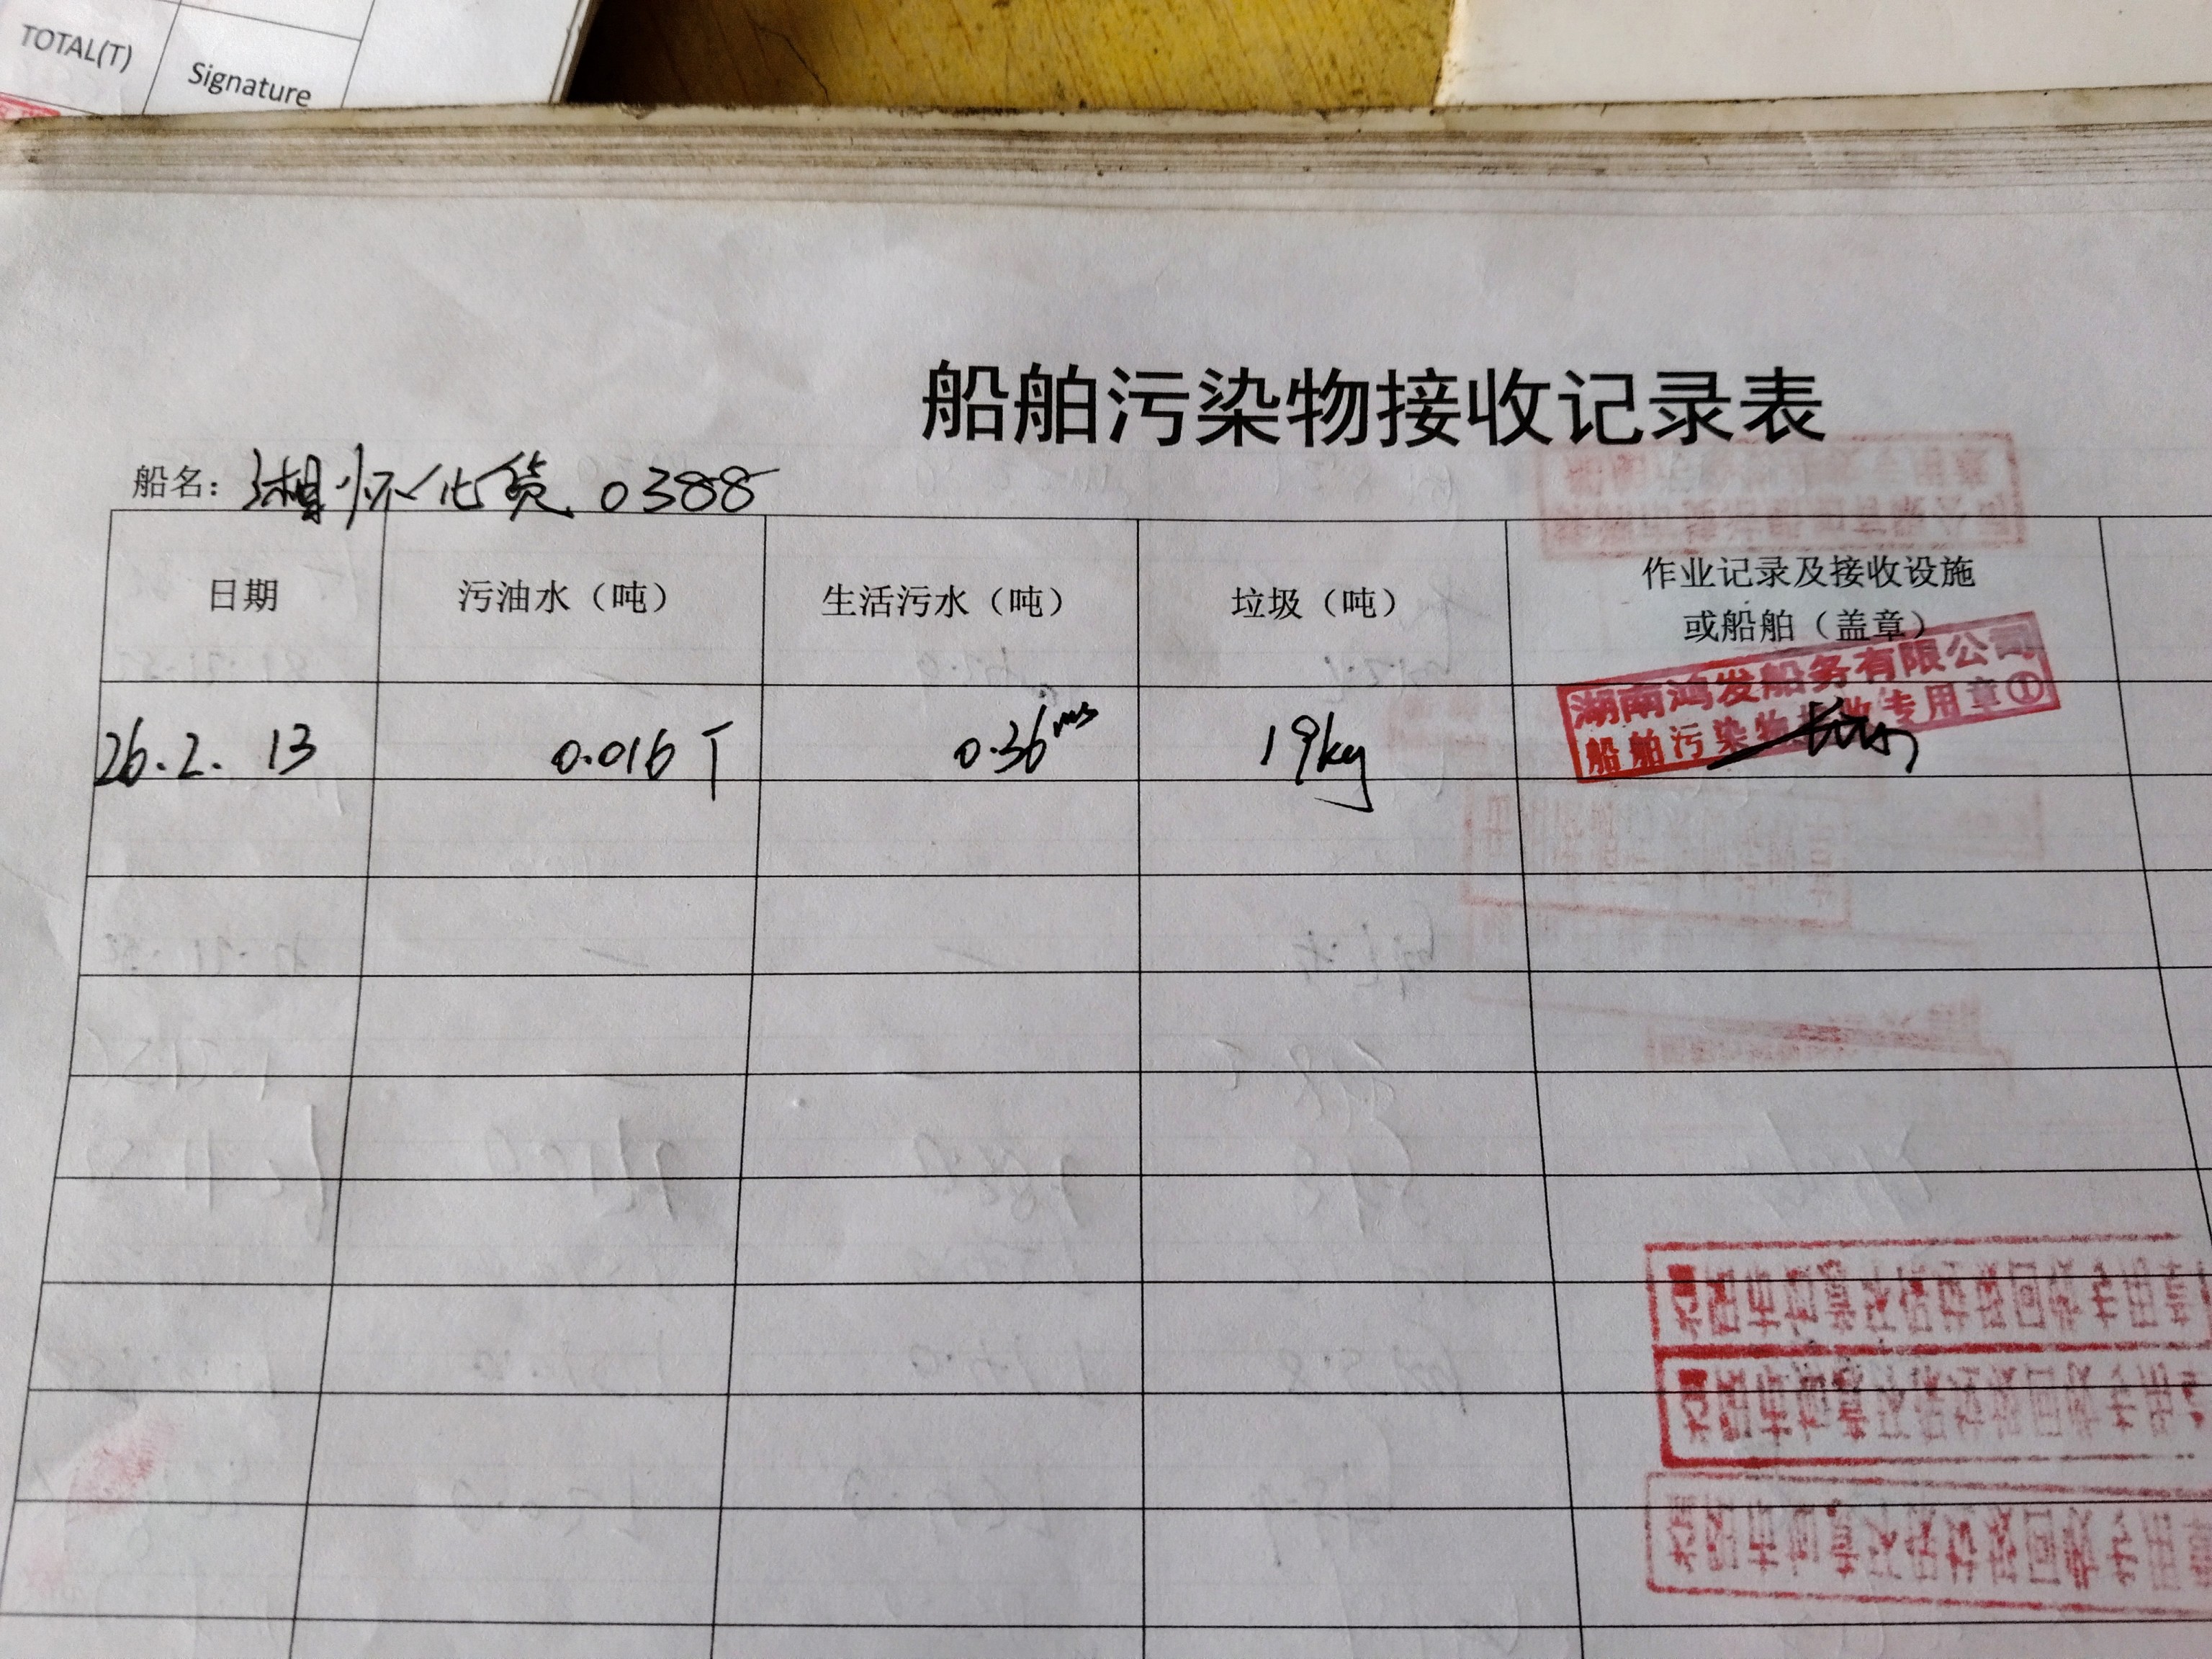 TOTAL(T)
Signature
船舶污染物接收记录表
船名：湘怀化货0388
日期 污油水（吨） 生活污水（吨） 垃圾（吨） 作业记录及接收设施
或船舶（盖章）
湖南鸿发船务有限公司
船舶污染物接收专用章①
26.2.13 0.016T 0.36m³ 19kg